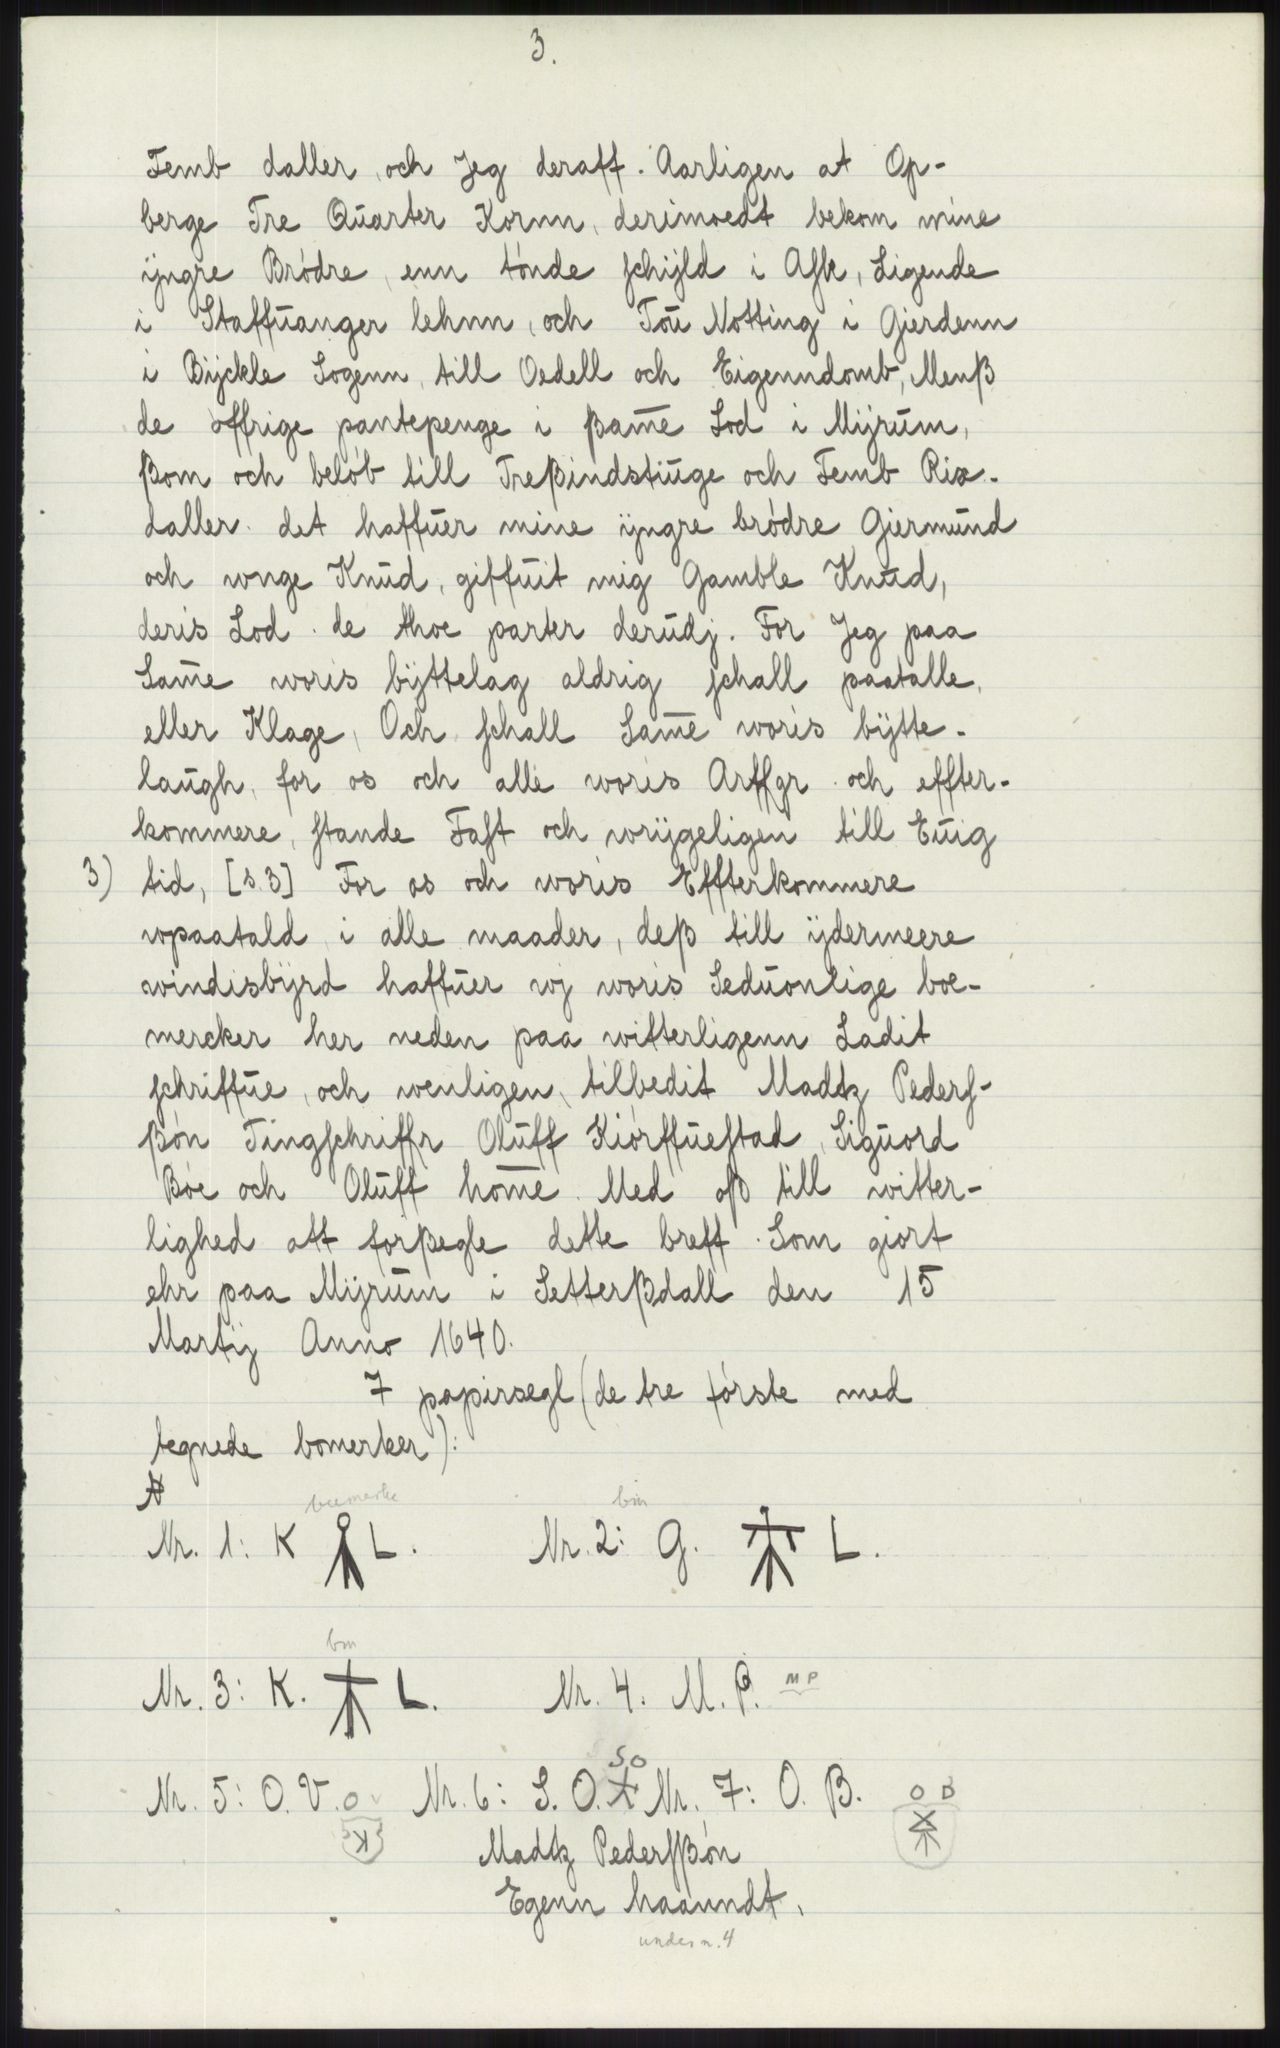 3.
Femb daller, och Jeg deraff. Aarligen at Op-
berge Tre Quarter Kornn, derimoedt bekom mine
ÿngre Brödre, enn tönde schijld i Ask, Ligende
i Staffuanger lehnn, och Tou Notting i Gierdenn
i Bÿckle Sogenn, till Oedell och Eigenndomb, Menß
de offrige pantepenge i ßam̅e Lod i Mÿrum,
ßom och belöb till Treßindstiuge och Femb Rix-
daller. det haffuer mine ÿngre brödre Giermund
och wnge Knud, giffuit mig Gamble Knud,
deris Lod. de thoe parter derudj. For Jeg paa
Sam̅e woris bÿttelag aldrig schall paatalle,
eller Klage, Och schall Sam̅e woris bÿtte-
laugh, for os och alle woris Arffgr. och effter-
kommere, stande Fast och wrÿgeligen till Euig
3) tid, [s. 3] For os och woris Effterkommere
wpaatald i alle maader, deß till ÿdermeere
windisbÿrd haffuer wj woris Seduonlige boe-
mercker her neden paa witterligenn Ladit
schriffue, och wenligen, tilbedit Madtz Peders-
ßön Tingschriffr Oluff Kiörffuestad, Siguord
Böe och Oluff hom̅e. Med oß till witter-
lighed att forßegle dette breff. Som giort
ehr paa Mÿrum i Setterßdall den 15
Martij Anno 1640.
7 papirsegl (de tre förste med
tegnede bomerker):
bumerke bm
Nr. 1: K L. Nr. 2: G. L.
bm
Nr. 3: K. L. Nr. 4. M. P. MP
SO
Nr. 5: O. V. O V Nr. 6: S. O. Nr. 7: O. B. O B
Madtz Pedersßön
Egenn haanndt.
under n. 4